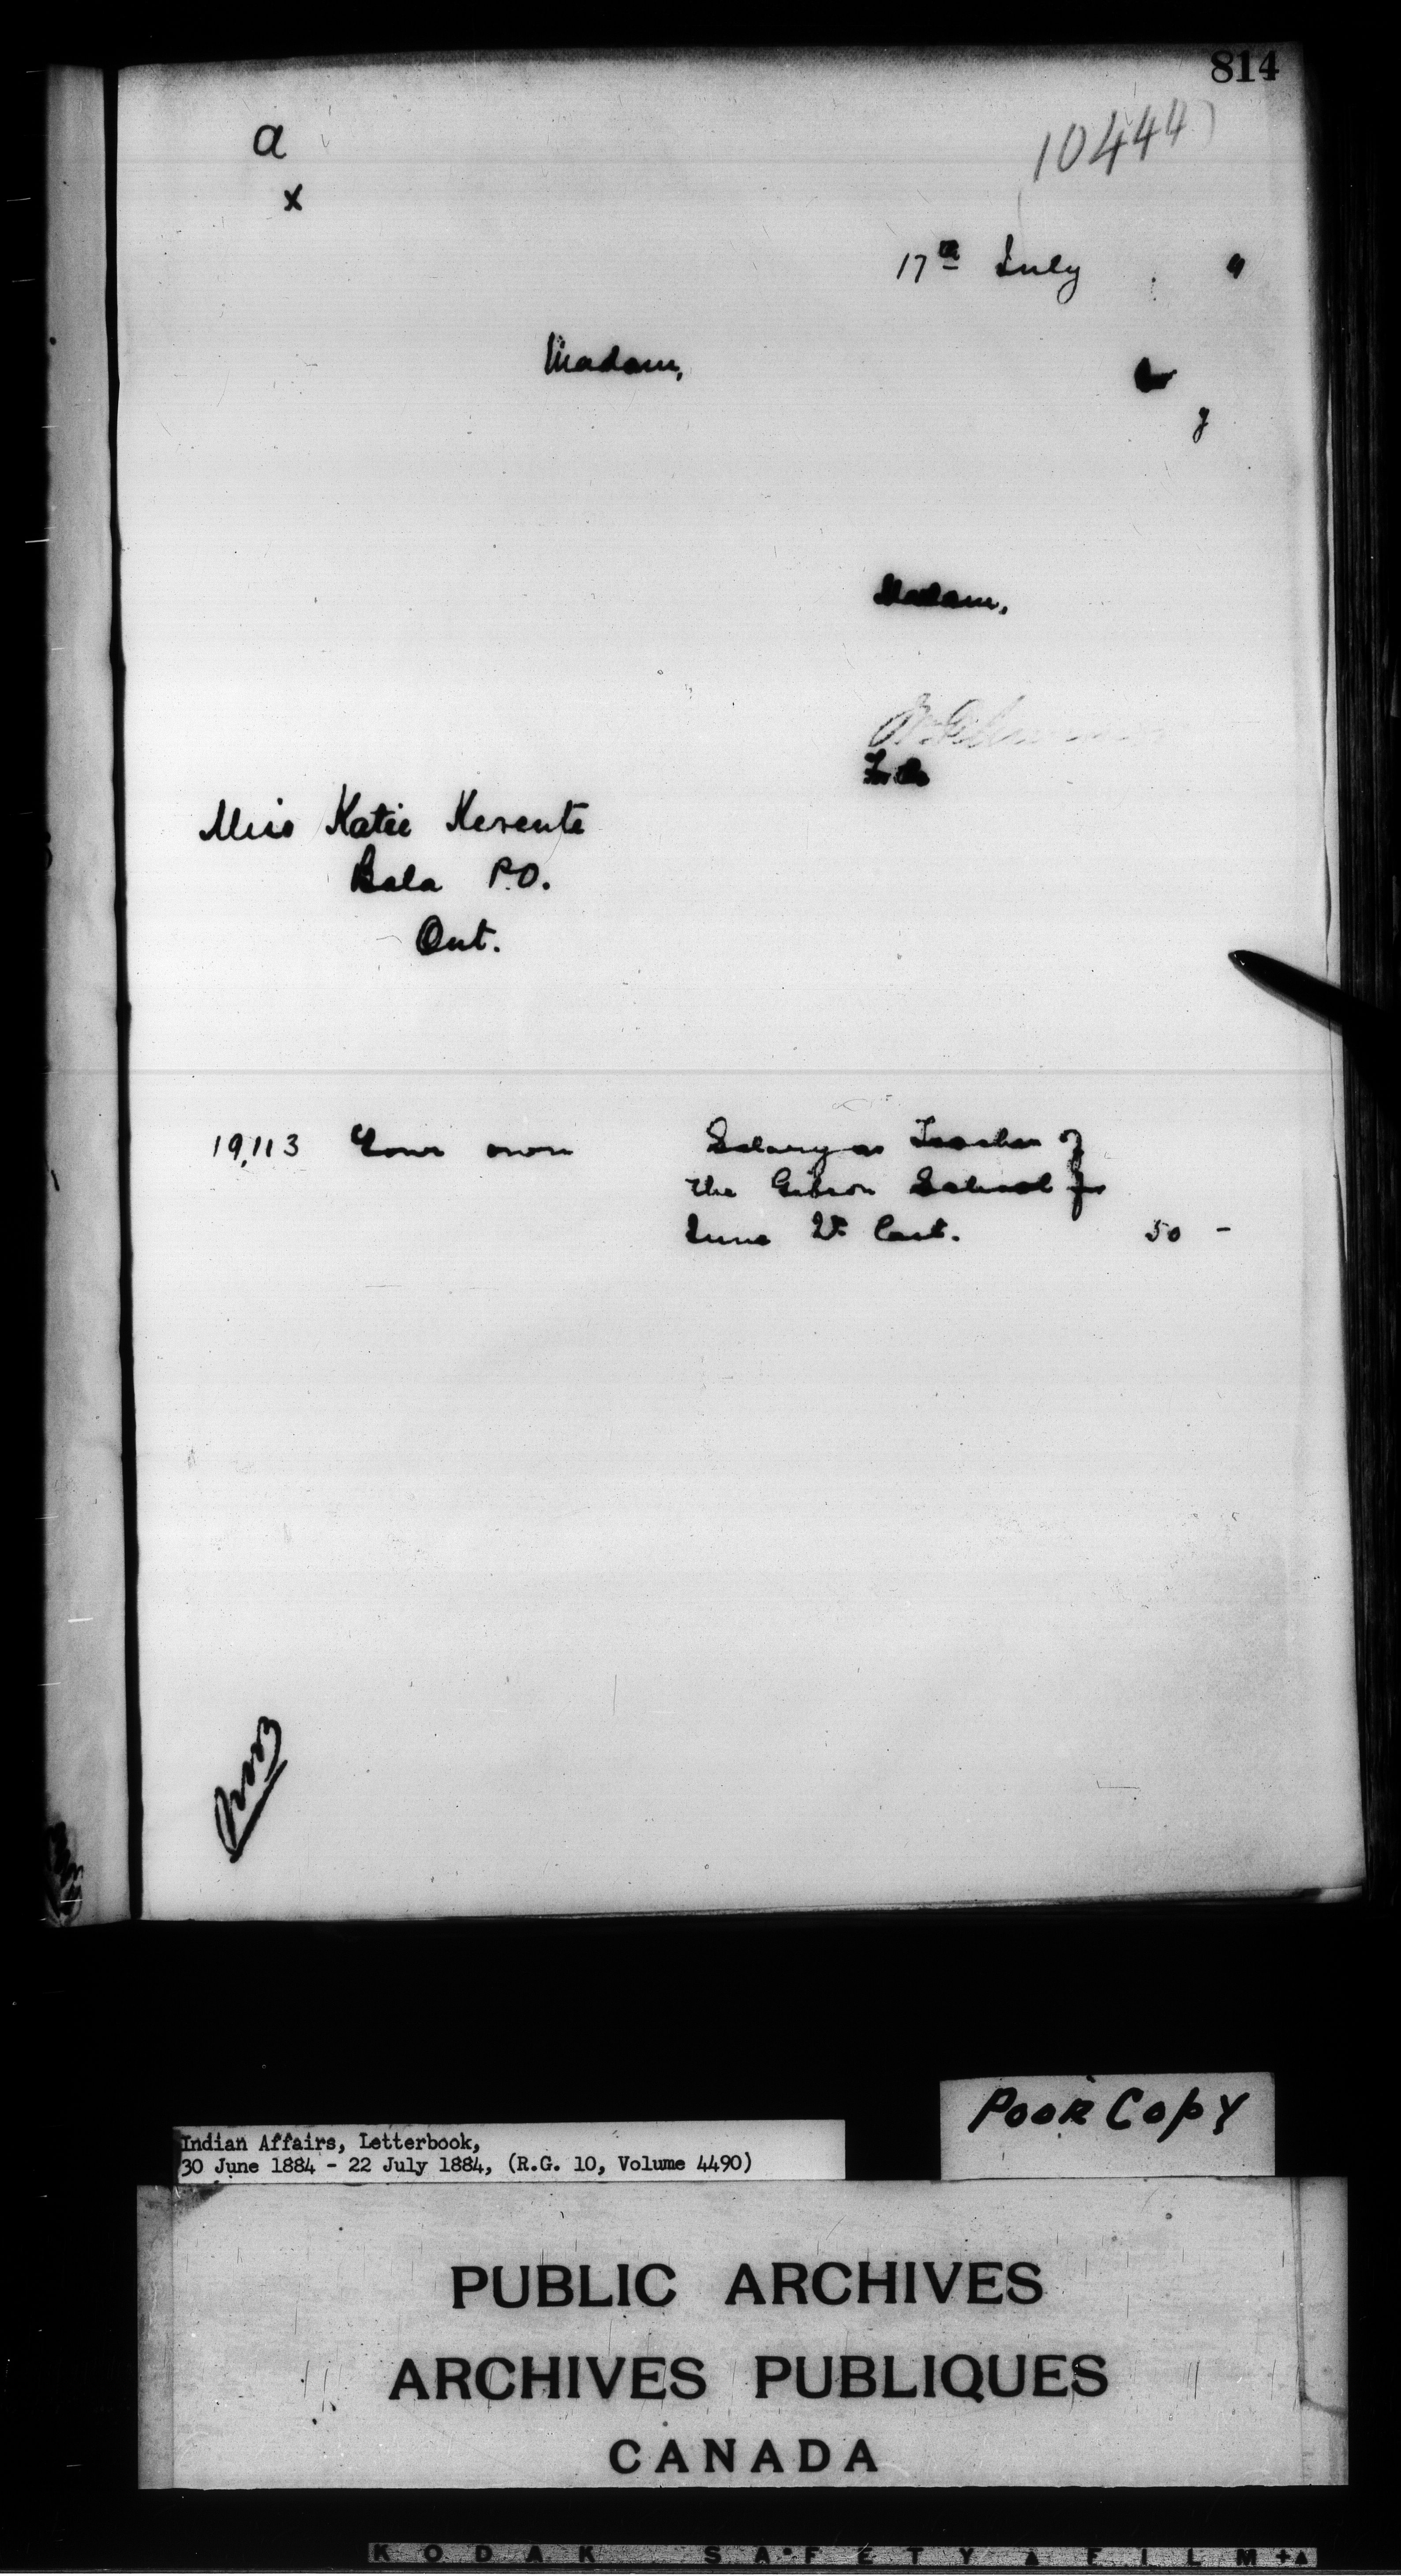 814
10444
a
x
17th July 4
Madam,
y
Madam,
For the
Miss Katie Kerente
Bala P.O.
Ont.
19,113 Your own Salary as Teacher of
the Gibson School for
June Qr. last. 50 -
Poor Copy
Indian Affairs, Letterbook,
30 June 1884 - 22 July 1884, (R.G. 10, Volume 4490)
PUBLIC ARCHIVES
ARCHIVES PUBLIQUES
CANADA
KODAK SAFETY FILM